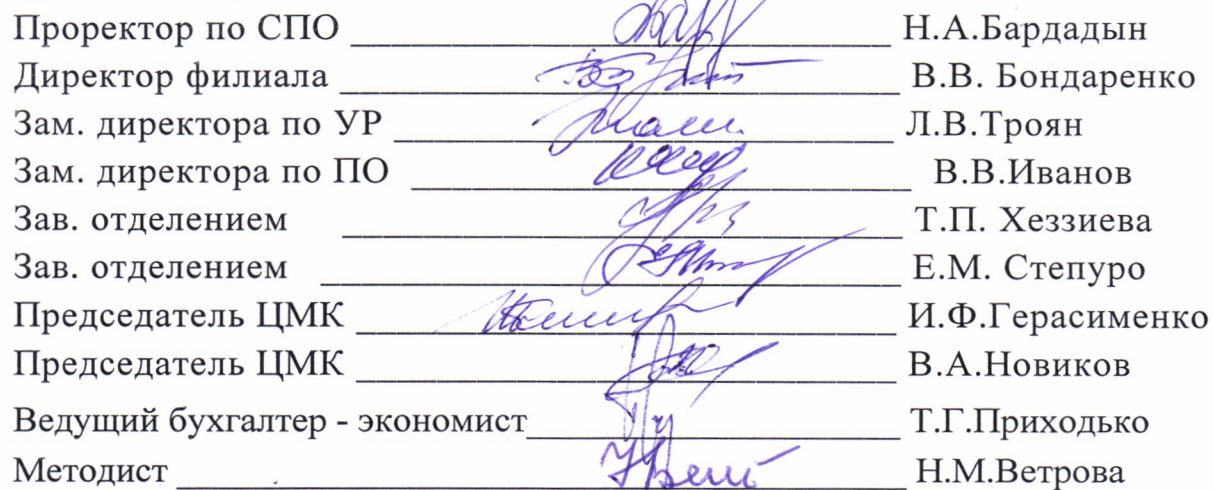 Проректор по СПО Н.А.Бардадын
Директор филиала В.В. Бондаренко
Зам. директора по УР Л.В.Троян
Зам. директора по ПО В.В.Иванов
Зав. отделением Т.П. Хеззиева
Зав. отделением Е.М. Степуро
Председатель ЦМК И.Ф.Герасименко
Председатель ЦМК В.А.Новиков
Ведущий бухгалтер - экономист Т.Г.Приходько
Методист Н.М.Ветрова